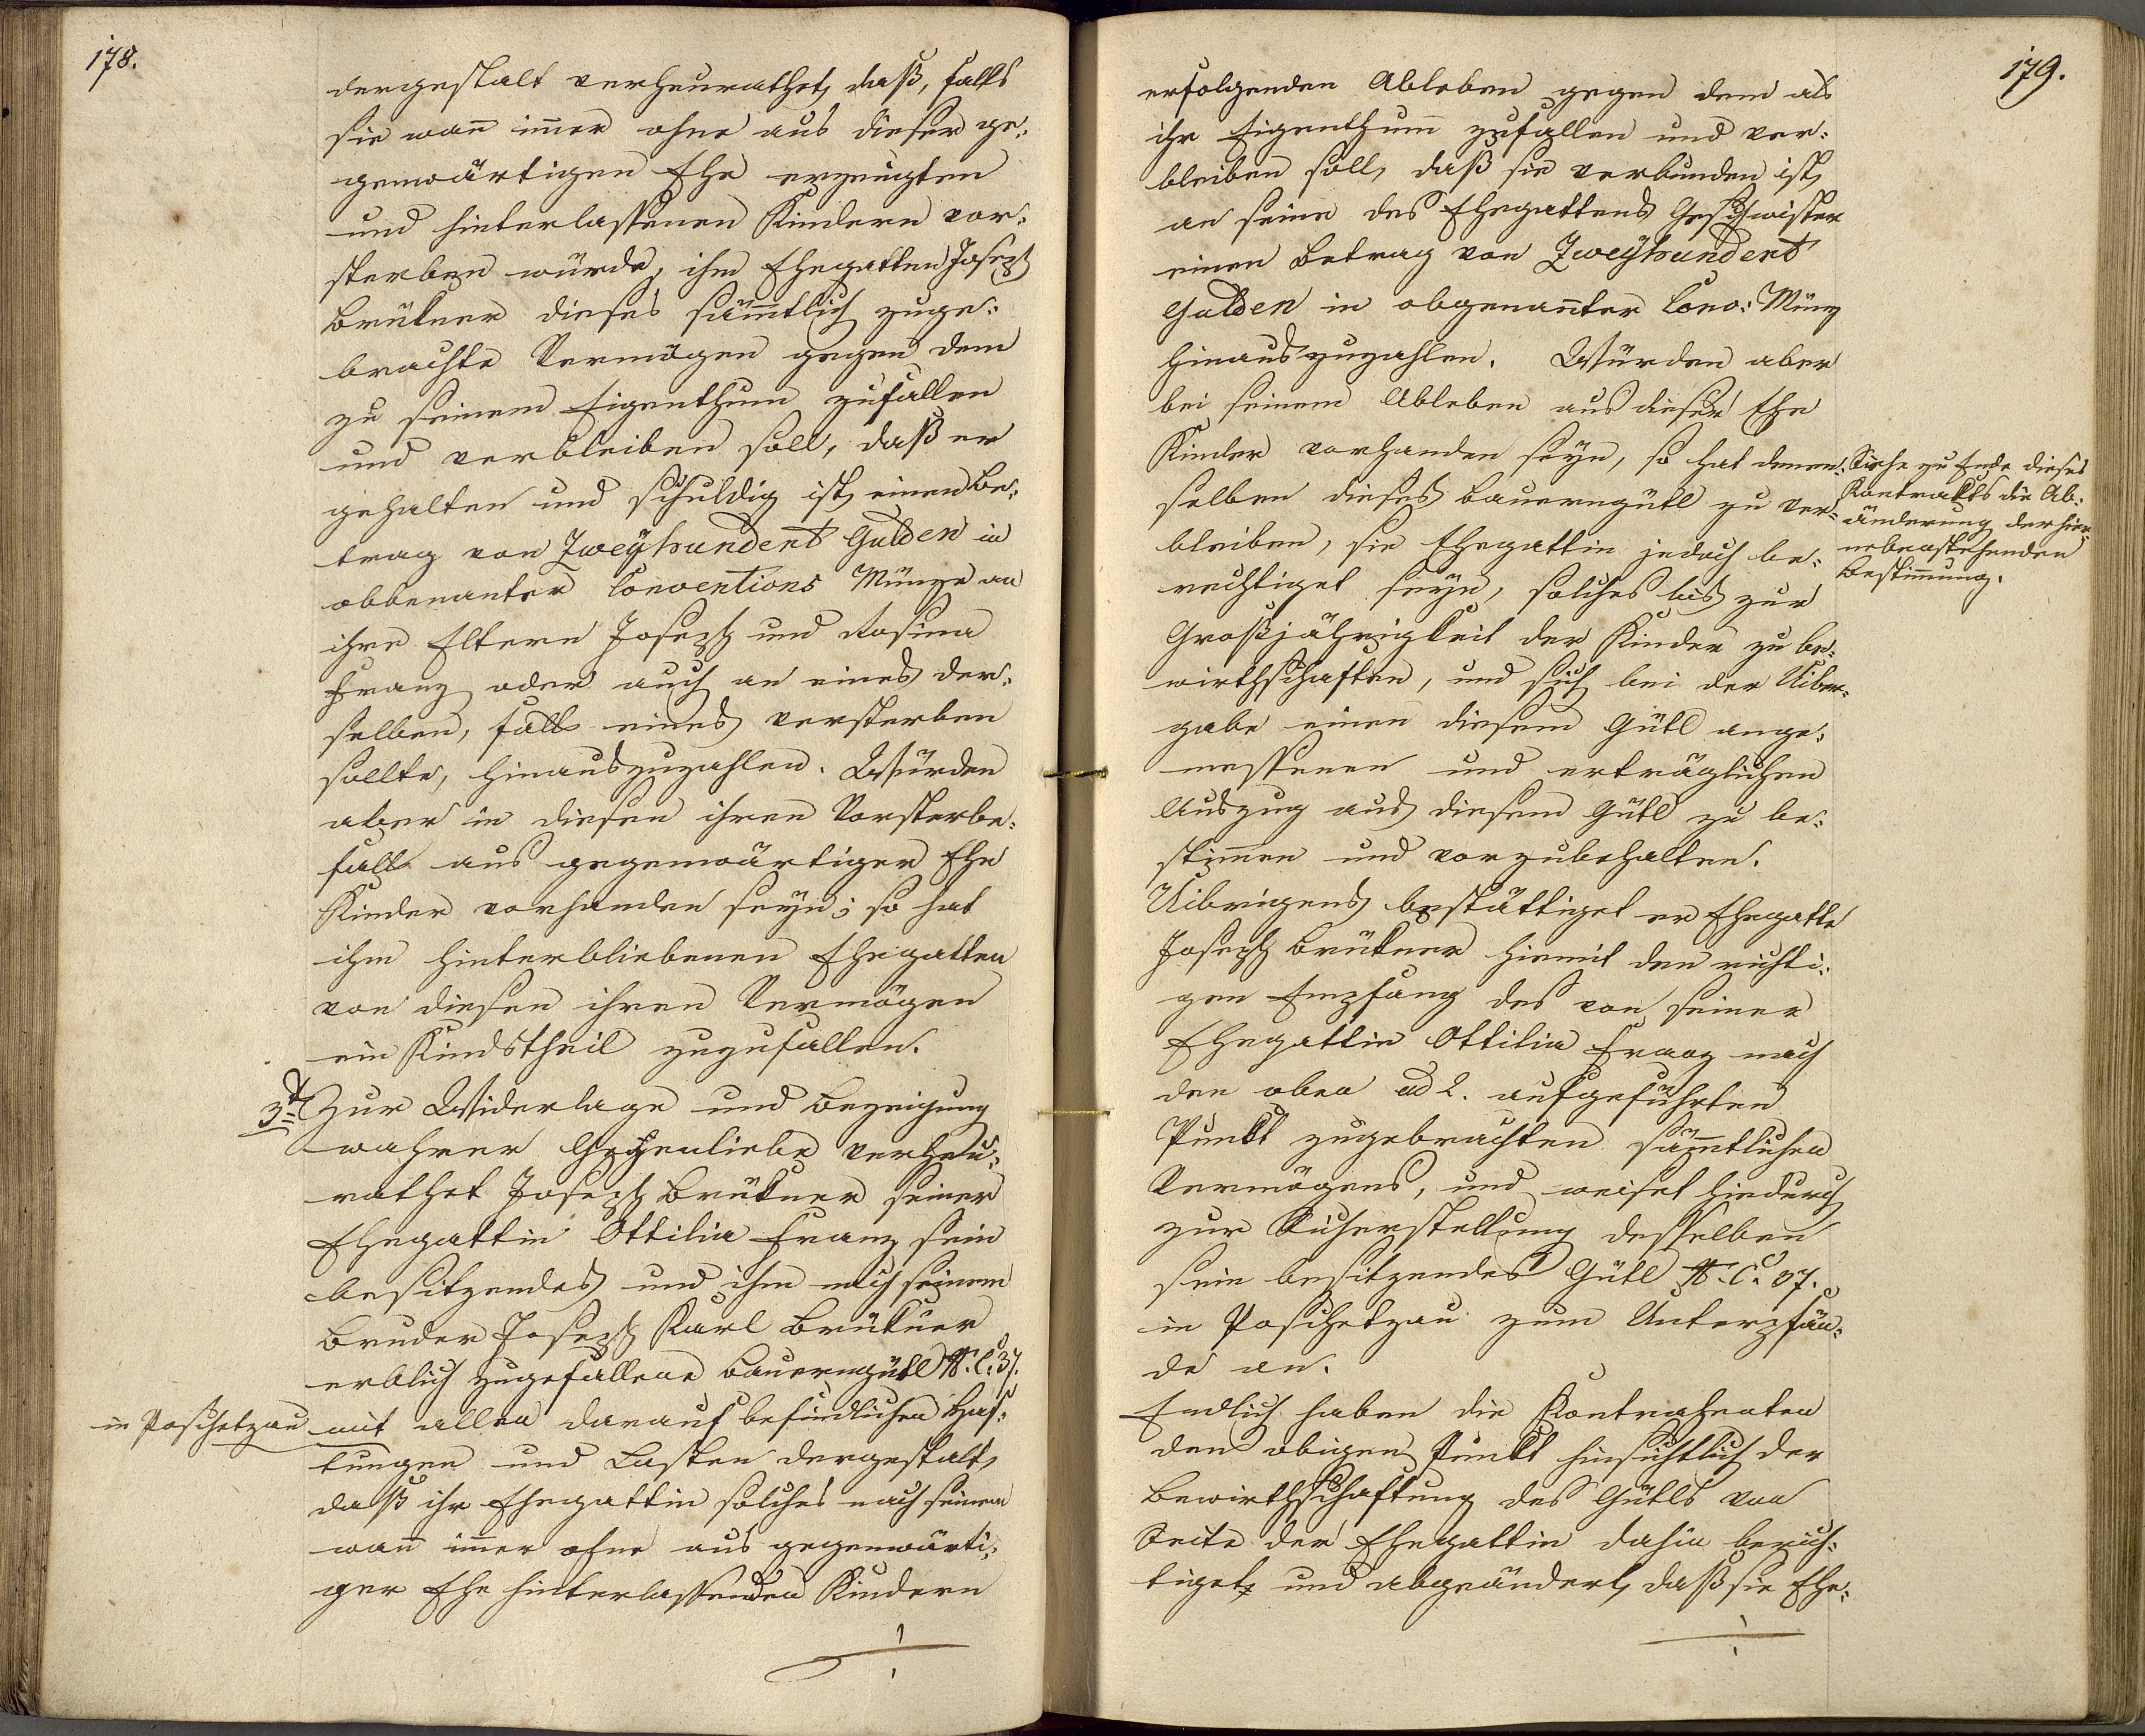 178.
dergestalt verheurathet, daß, falls
sie wan̄ im̄er ohne aus dieser ge„
genwärtigen Ehe erzeugten
und hinterlassenen Kindern vor„
sterben würde, ihm Ehegatten Joseph
Brükner dieses säm̄tlich zuge„
brachte Vermögen gegen dem
zu seinem Eigenthum zufallen
und verbleiben soll, daß er
gehalten und schuldig ist, einen Be„
trag von Zweyhundert Gulden in
obbenanter Conventions Münze an
ihre Eltern Joseph und Rosina
Franz oder auch an eines der„
selben, falls eines versterben
sollte, hinauszuzahlen. Würden
aber in diesen ihren Vorsterbe„
falle aus gegenwärtiger Ehe
Kinder vorhanden seyn; so hat
ihm hinterbliebenen Ehegatten
von diesen ihren Vermögen
ein Kindstheil zuzufallen.
3t. Zur Widerlage und Bezeigung
wahrer Gegenliebe verheu„
rathet Joseph Brükner seiner
Ehegattin Ottilia Franz sein
besitzendes und ihm nach seinem
Bruder Joseph Karl Brükner
erblich zugefallene Bauerngütl N. C. 37.
in Poschetzau mit allen darauf befindlichen Haf„
tungen und Lasten dergestalt,
daß ihr Ehegattin solches nach seinem
wan̄ im̄er ohne aus gegenwärti„
ger Ehe hinterlassenden Kindern
179.
erfolgenden Ableben gegen dem als
ihr Eigenthum zufallen und ver„
bleiben soll, daß sie verbunden ist,
an seine des Ehegattens Geschwister
einen Betrag von Zweyhundert
Gulden in obgenan̄ter Conv: Münz
hinauszuzahlen. Würden aber
bei seinem Ableben aus dieser Ehe
Kinder vorhanden seyn, so hat denen„
selben dieses Bauerngütl zu ver„
bleiben, sie Ehegattin jedoch be„
rechtiget seyn, solches bis zur
Großjährigkeit der Kinder zu be„
wirthschaften, und sich bei der Uiber„
gabe einen diesem Gütl ange„
messenen und erträglichen
Auszug aus diesem Gütl zu be„
stim̄en und vorzubehalten.
Uibrigens bestättiget er Ehegatte
Joseph Brükner hiemit den richti„
gen Empfang des von seiner
Ehegattin Ottilia Franz nach
den oben ad 2. aufgeführten
Punkt zugebrachten säm̄tlichen
Vermögens, und weiset hiedurch
zur Sicherstellung desselben
sein besitzendes Gütl N. C. 37.
in Poschetzau zum Unterpfän„
de an.
Endlich haben die Kontrahenten
den obigen Punkt hinsichtlich der
Bewirthschaftung des Gütls von
Seite der Ehegattin dahin berich„
tiget, und abgeändert, daß sie Ehe„
Siehe zu Ende dieses
Kontrakts die Ab„
änderung der hier
nebenstehenden
Bestim̄ung.